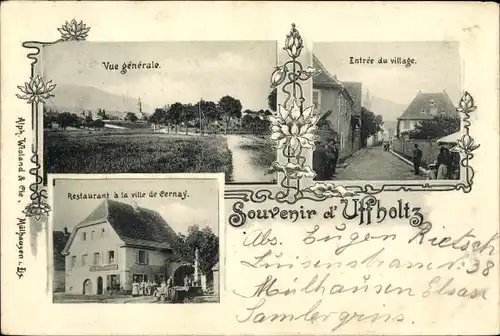 Vue générale.
Entrée du village.
Restaurant à la ville de Cernay.
Alph. Wioland & Cie., Mülhausen i. Els.
Souvenir d'Uffholtz
Abs. Eugen Rietsch
Luisenstrasse 38
Mülhausen Elsass